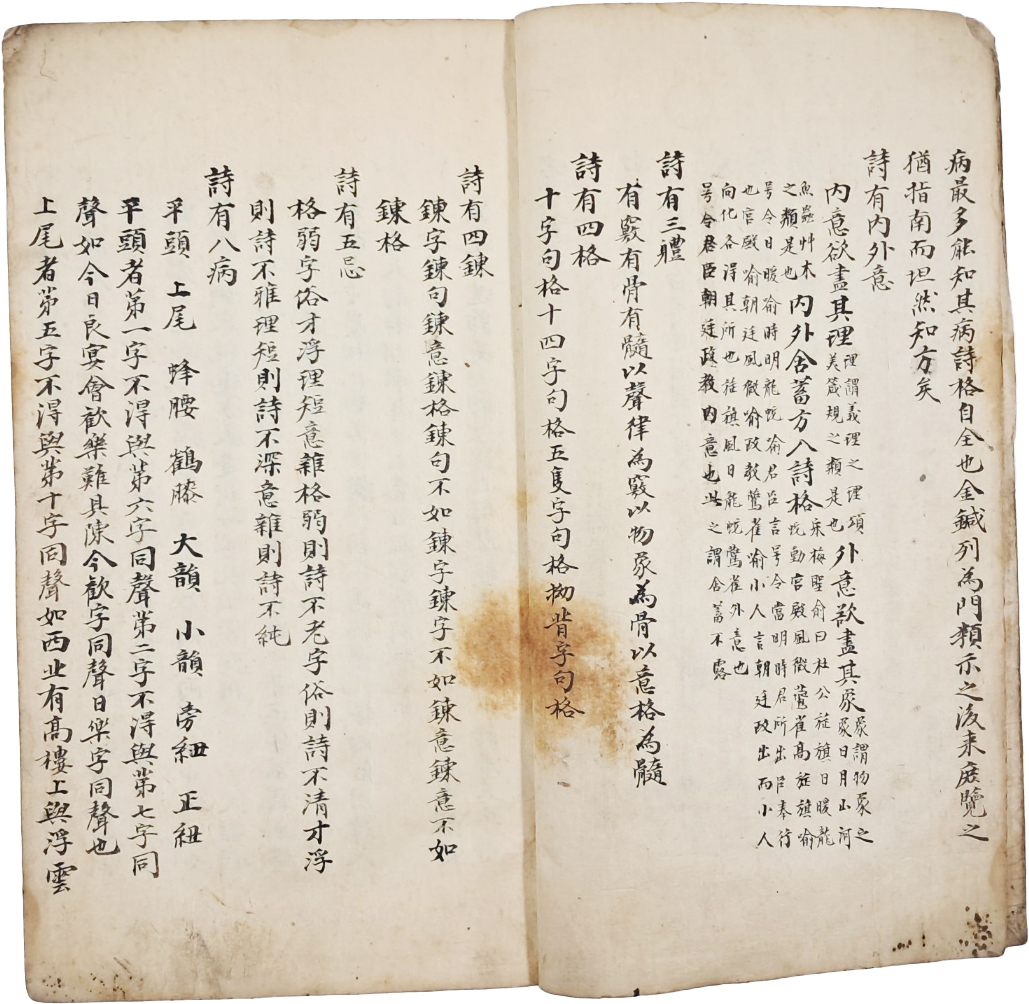 病最多能知其病詩格自全也金鍼列為門類示之後来庶覽之
猶指南而坦然知方矣
詩有内外意
内意欲盡其理理謂義理之理頌美箴規之類是也外意欲盡其象象謂物象之象日月山河
魚蟲艸木之類是也内外含蓄方入詩格宋梅聖俞曰杜公旌旗日暖龍虵動宮殿風微鷰雀高旌旗喻
号令日暖喻時明龍虵喻君臣言号令當明時君所出臣奉行
也宮殿喻朝廷風微喻政教鷰雀喻小人言朝廷政出而小人
向化各得其所也旌旗風日龍虵鷰雀外意也
号令君臣朝廷政教内意也此之謂含蓄不露
詩有三體
有竅有骨有髓以聲律為竅以物象為骨以意格為髓
詩有四格
十字句格十四字句格五隻字句格拗背字句格
詩有四鍊
鍊字鍊句鍊意鍊格鍊句不如鍊字鍊字不如鍊意鍊意不如
鍊格
詩有五忌
格弱字俗才浮理短意雜格弱則詩不老字俗則詩不清才浮
則詩不雅理短則詩不深意雜則詩不純
詩有八病
平頭 上尾 蜂腰 鶴膝 大韻 小韻 旁紐 正紐
平頭者第一字不得與第六字同聲第二字不得與第七字同
聲如今日良宴會歡樂難具陳今歡字同聲日樂字同聲也
上尾者第五字不得與第十字同聲如西北有高樓上與浮雲